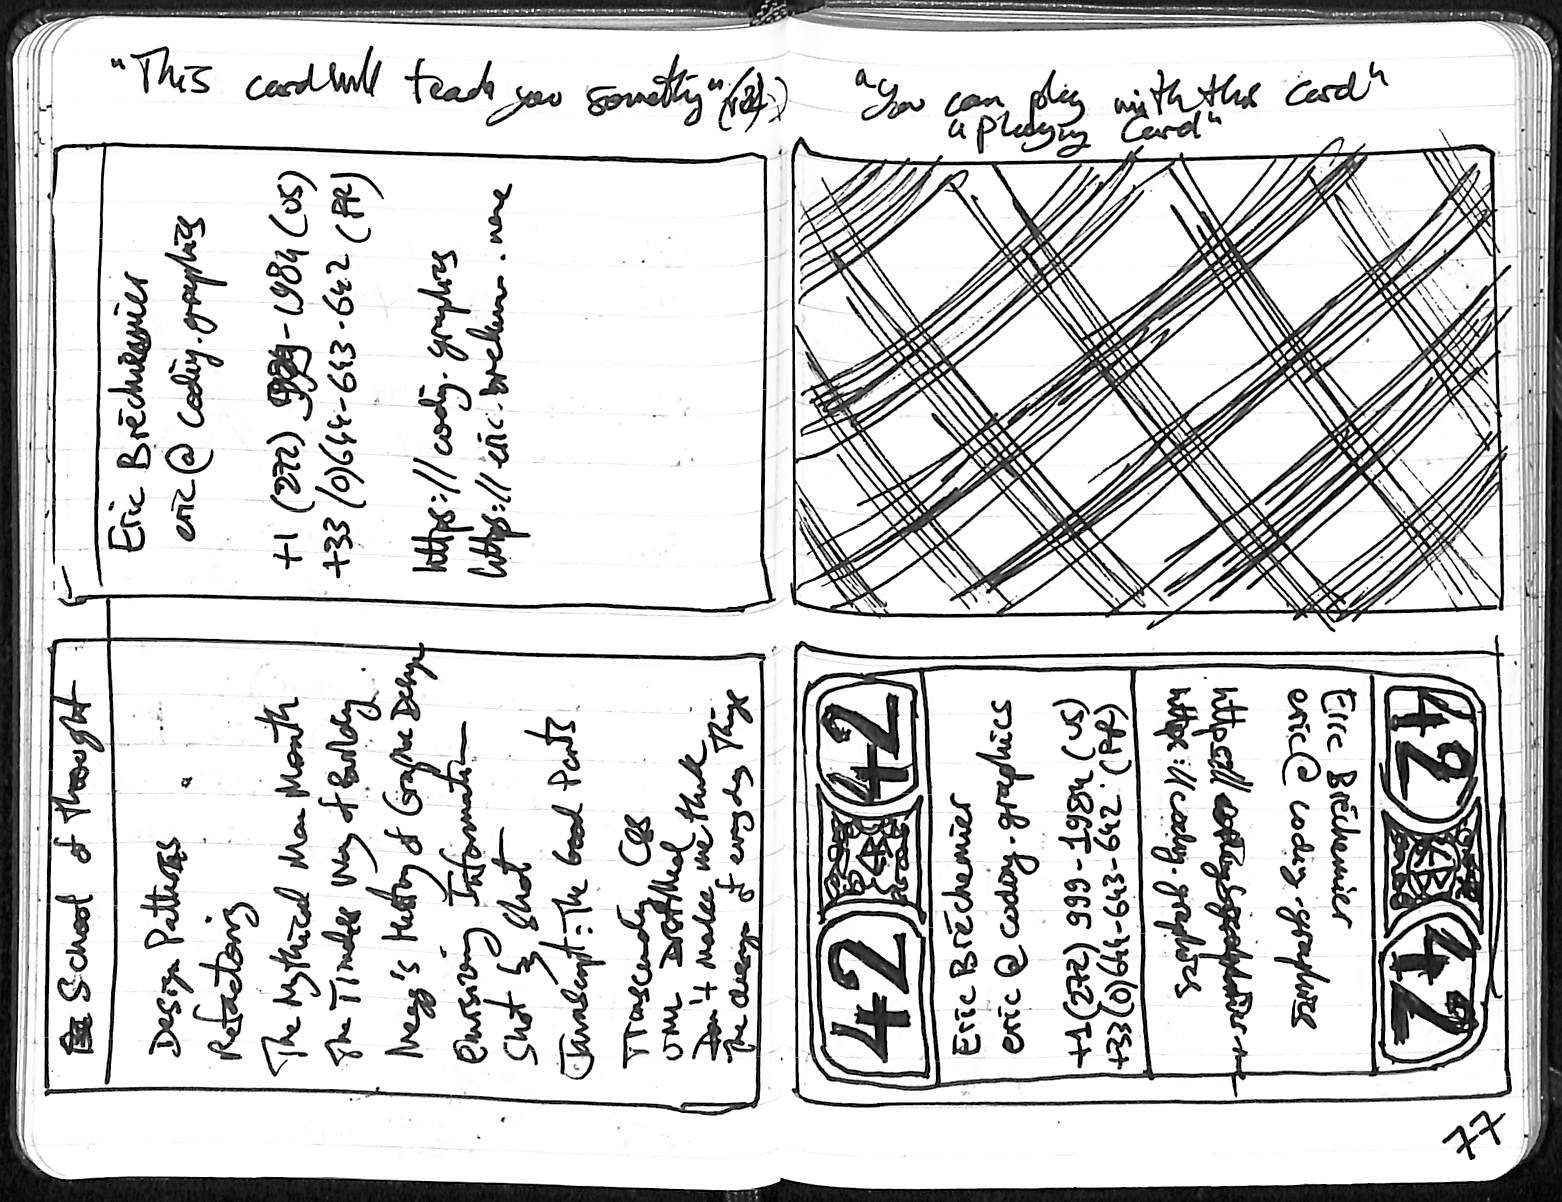 "This card will teach you something"
"You can play with this card"
"a playing card"
Eric Bréchemier
eric@coding.graphics
+1 (272) 999-1984 (US)
+33 (0)644-643-642 (FR)
https://coding.graphics
https://eric.brechem...name
School of thought
Design Patterns
Refactoring
The Mythical Man Month
The Timeless Way of Building
Megg's History of Graphic Design
Envisioning Information
Shot by Shot
JavaScript: The Good Parts
Transcending CSS
UML Distilled
Don't make me think
The design of everyday Things
42
42
Eric Bréchemier
eric@coding.graphics
+1 (272) 999-1984 (US)
+33 (0)644-643-642 (FR)
https://coding.graphics
eric@coding.graphics
Eric Bréchemier
42
42
77